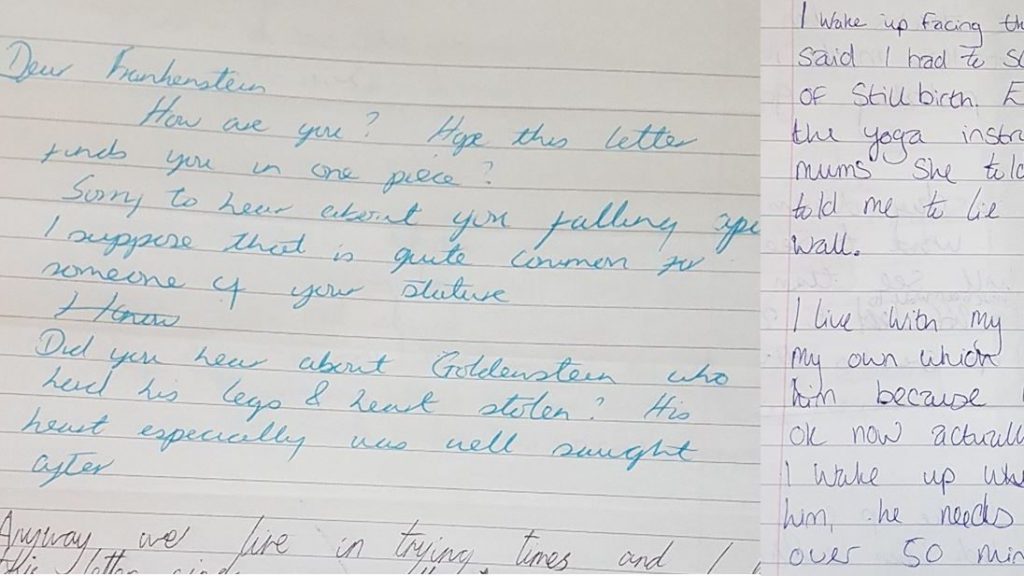 Dear Frankenstein
How are you? Hope this letter
finds you in one piece?
Sorry to hear about you falling apa
I suppose that is quite common for
someone of your stature
I know
Did you hear about Goldenstein who
had his legs & heart stolen? His
heart especially was well saught
after
Anyway we live in trying times and I
this letter
I wake up facing th
said I had to
of still birth. E
the yoga instr
mums she told
told me to lie
wall.
I live with my
my own which
him because
ok now actuall
I wake up whe
him, he needs
over 50 min